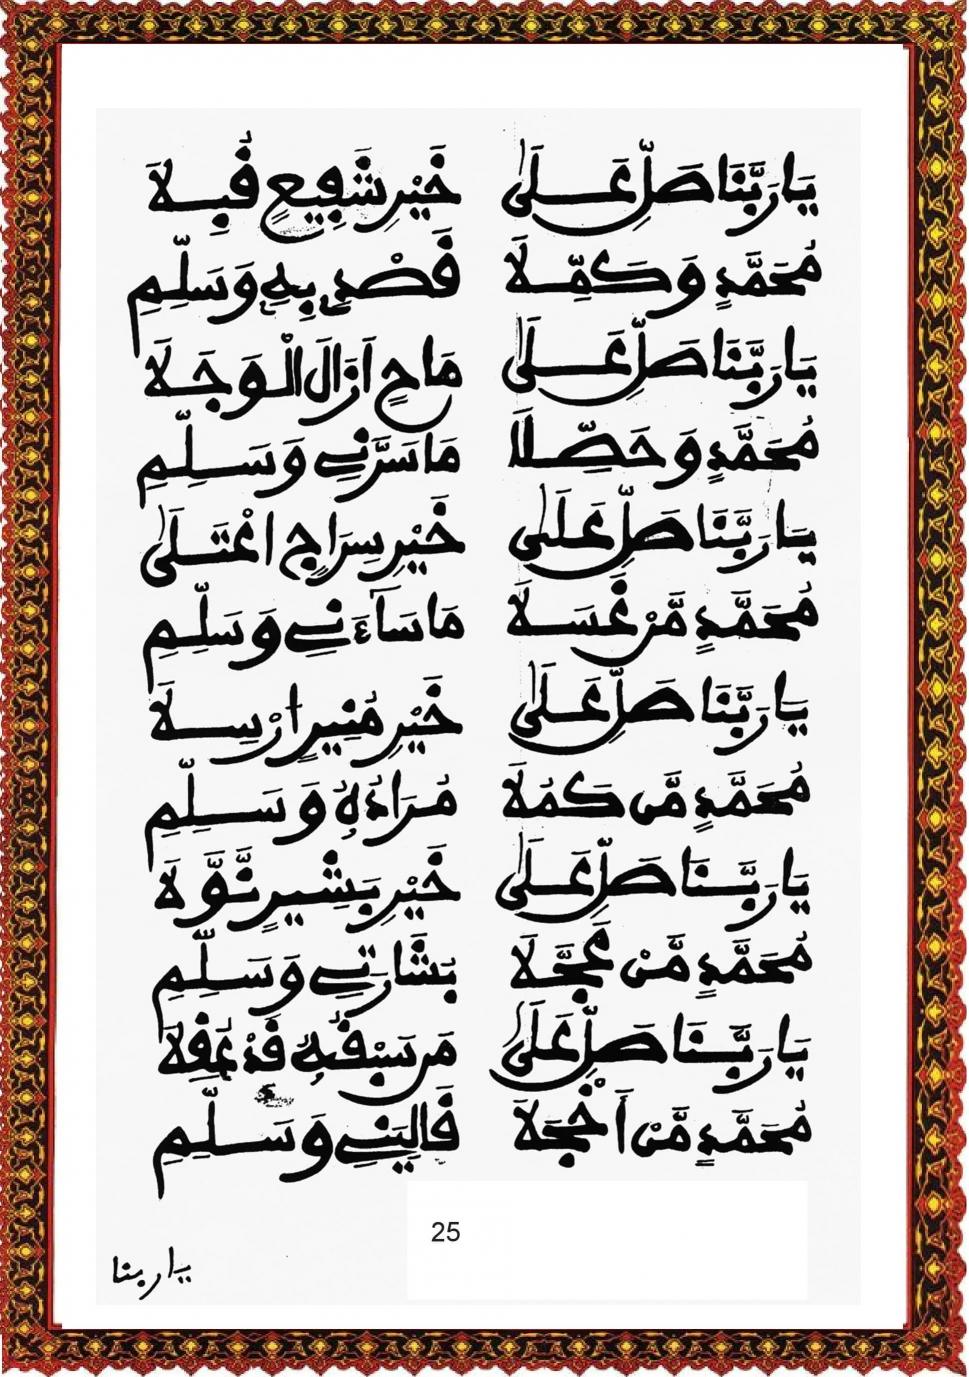 يَا رَبَّنَا صَلِّ عَلَى خَيْرِ شَفِيعٍ قُبِلَا
مُحَمَّدٍ وَكَمِّلَا قَصْدِي بِهِ وَسَلِّمِ
يَا رَبَّنَا صَلِّ عَلَى مَاحٍ اَزَالَ الْوَجَلَا
مُحَمَّدٍ وَحَصِّلَا مَا سَرَّنِي وَسَلِّمِ
يَا رَبَّنَا صَلِّ عَلَى خَيْرِ سِرَاجٍ اعْتَلَى
مُحَمَّدٍ مَّنْ غَسَلَا مَا سَاءَنِي وَسَلِّمِ
يَا رَبَّنَا صَلِّ عَلَى خَيْرِ مُنِيرٍ ارْسِلَا
مُحَمَّدٍ مَّن كَمُلَا مُرَادُهُ وَسَلِّمِ
يَا رَبَّنَا صَلِّ عَلَى خَيْرِ بَشِيرٍ نَّوَّلَا
مُحَمَّدٍ مَّنْ عَجَّلَا بَشَارَتِي وَسَلِّمِ
يَا رَبَّنَا صَلِّ عَلَى مَن سَبْقُهُ قَدْ عُقِلَا
مُحَمَّدٍ مَّنْ أَخْجَلَا قَالِيَنِي وَسَلِّمِ
25
يا ربنا